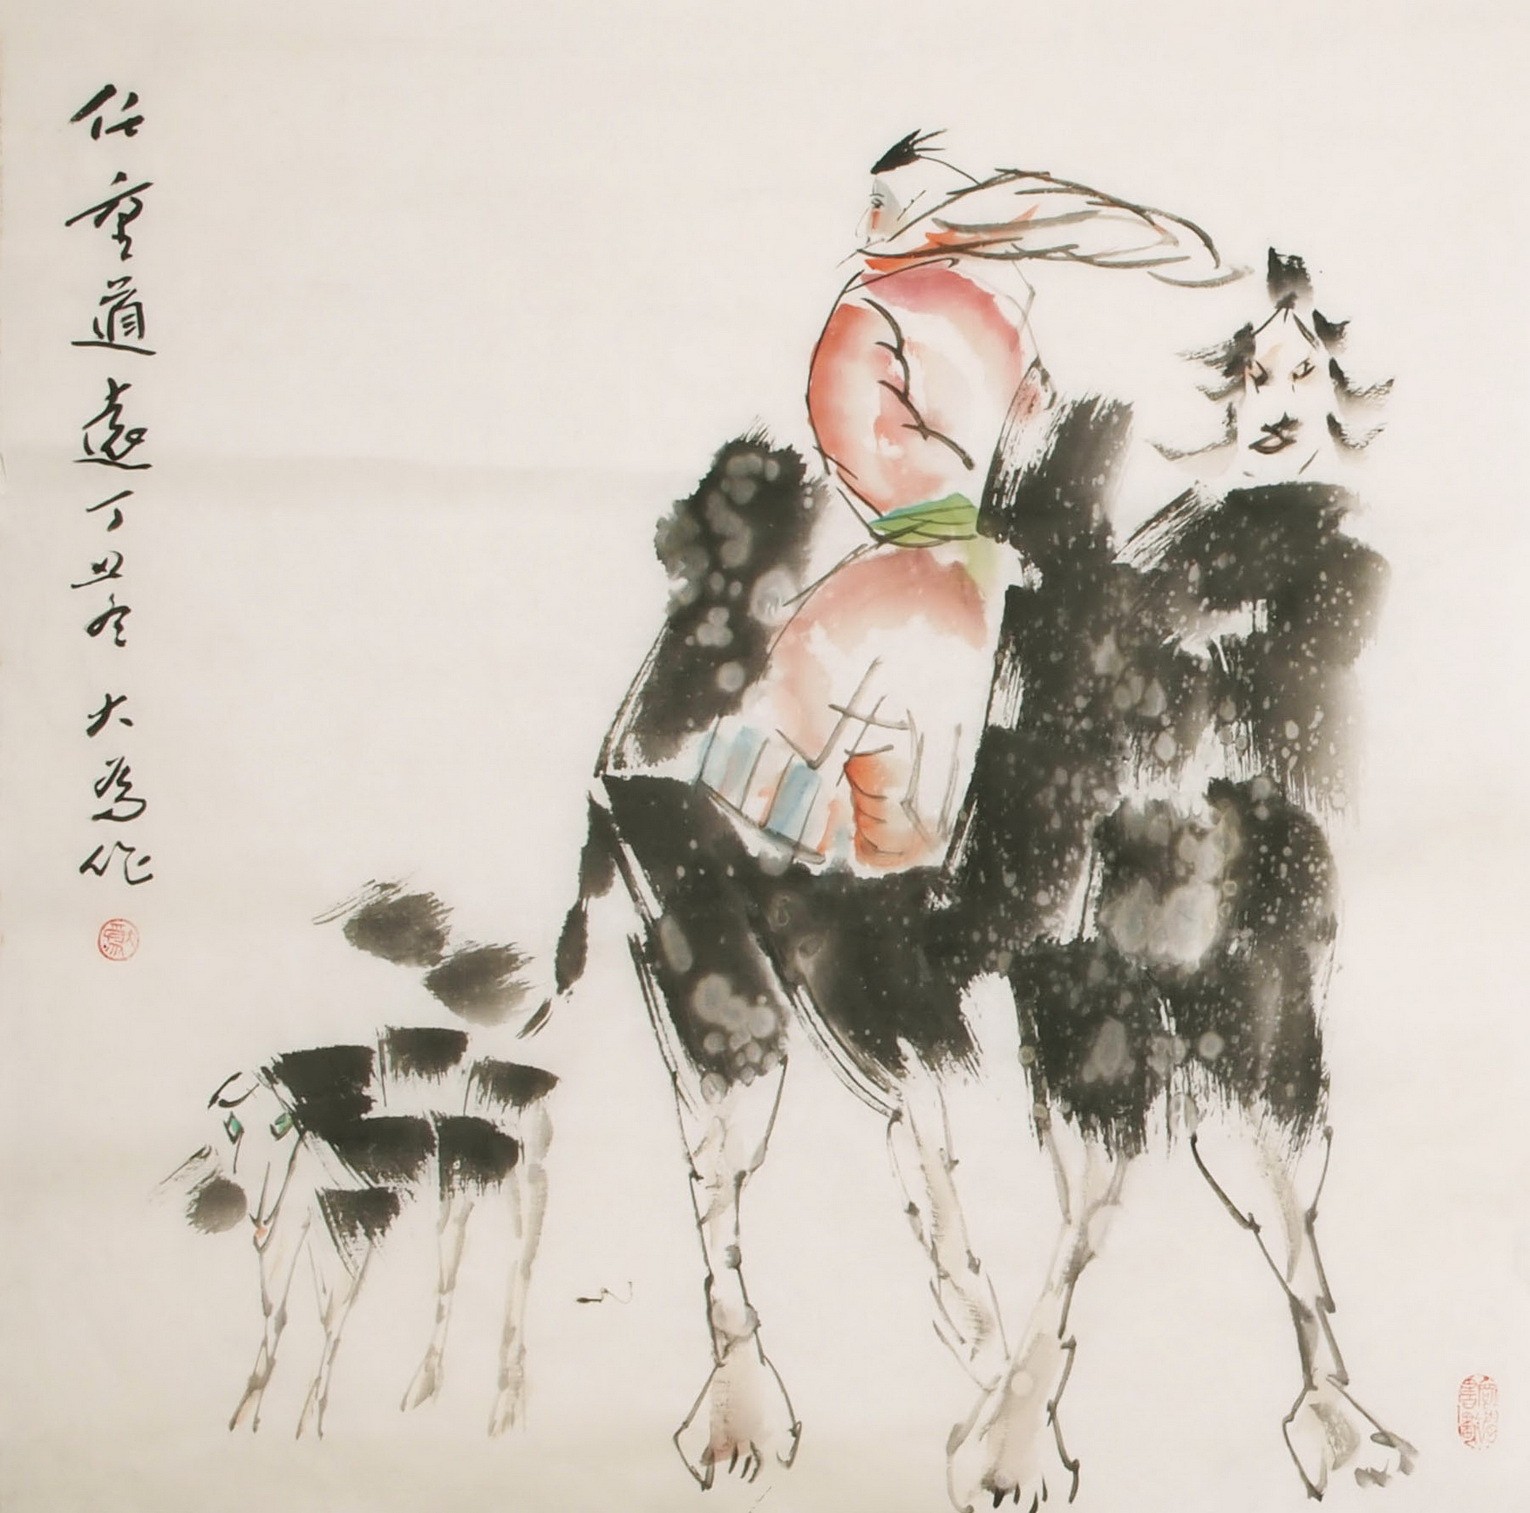 任重道遠丁丑冬 大為作